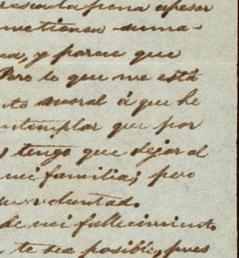 pena apesar
suma-
y parece que
Pero lo que me está
moral á que he
contemplar que por
tengo que dejar al
mi familia; pero
su voluntad.
de mi fallecimiento
te sea posible, pues